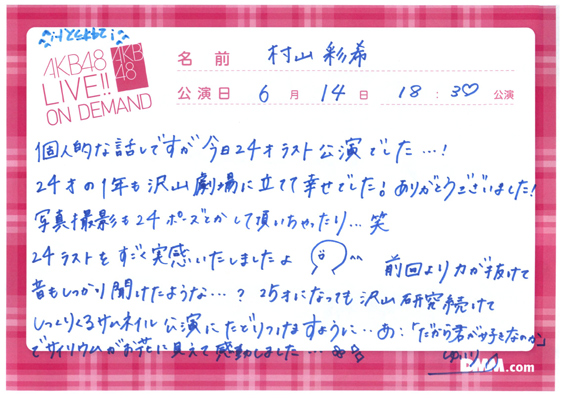 AKB48
LIVE!!
ON DEMAND
AKB
48
名前 村山彩希
公演日 6月14日 18:30公演
個人的な話しですが今日24才ラスト公演でした…!
24才の1年も沢山劇場に立てて幸せでした!ありがとうございました!
写真撮影も24ポーズとかして頂いちゃったり…笑
24ラストをすごく実感いたしましたよ
前回より力が抜けて
音もしっかり聞けたような…?25才になっても沢山研究続けて
しっくりくるサムネイル公演にたどりつけますように…あ:「だから君が好きなのか」
でサイリウムがお花に見えて感動しました…
DMM.com